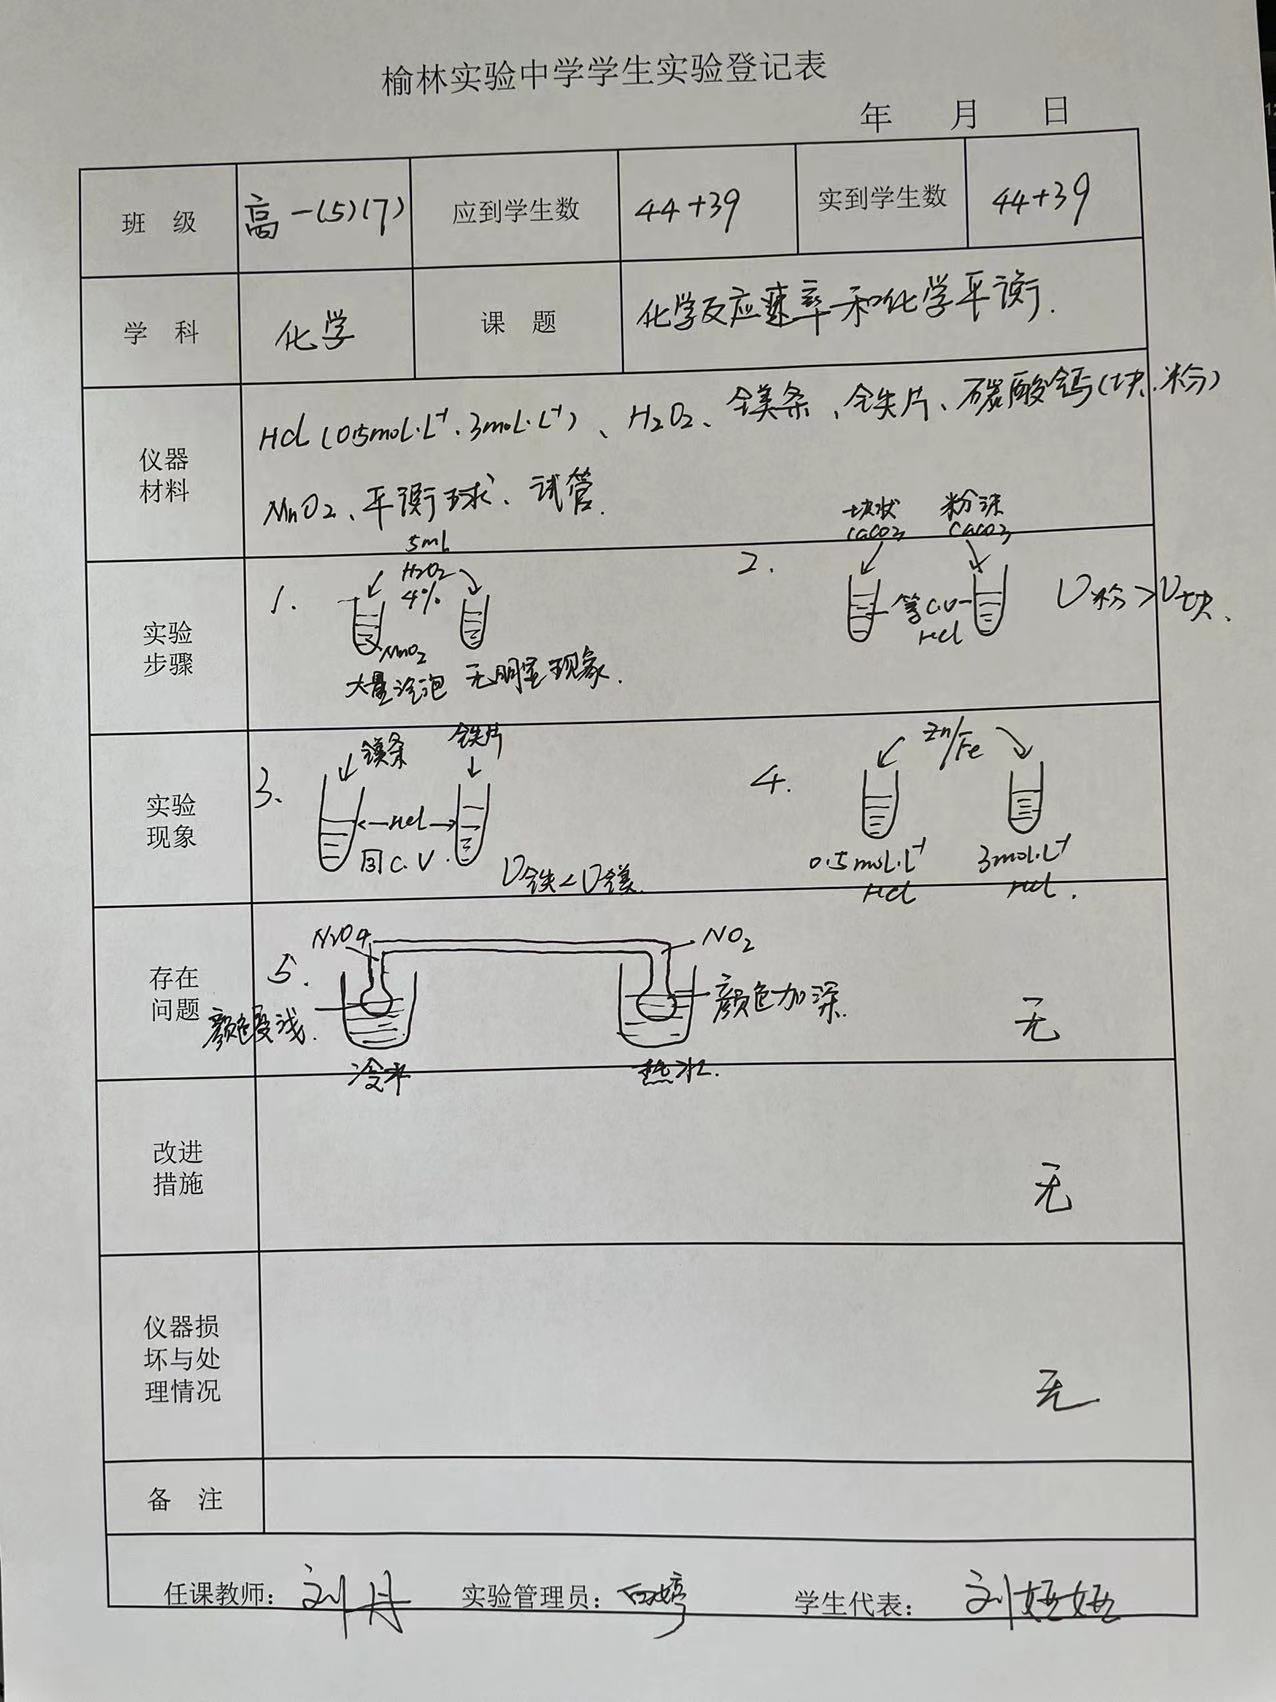 榆林实验中学学生实验登记表
年 月 日
班 级 高一(5)(7) 应到学生数 44+39 实到学生数 44+39
学 科 化学 课 题 化学反应速率和化学平衡.
仪器
材料
HCl (0.5mol·L⁻¹、3mol·L⁻¹)、H2O2、镁条、铁片、碳酸钙(块、粉)
MnO2、平衡球、试管.
实验
步骤
1.
5mL
H2O2
4%
MnO2
大量泡 无明显现象.
2.
块状
CaCO3
粉沫
CaCO3
等C.V
HCl
υ粉>υ块、
实验
现象
3.
镁条
铁片
HCl
同C.V.
υ铁<υ镁.
4.
Zn/Fe
0.5mol·L⁻¹
HCl
3mol·L⁻¹
HCl.
存在
问题
5.
N2O4
NO2
颜色变浅.
颜色加深.
冷水
热水.
无
改进
措施
无
仪器损
坏与处
理情况
无
备 注
任课教师: 刘月 实验管理员: 学生代表: 刘